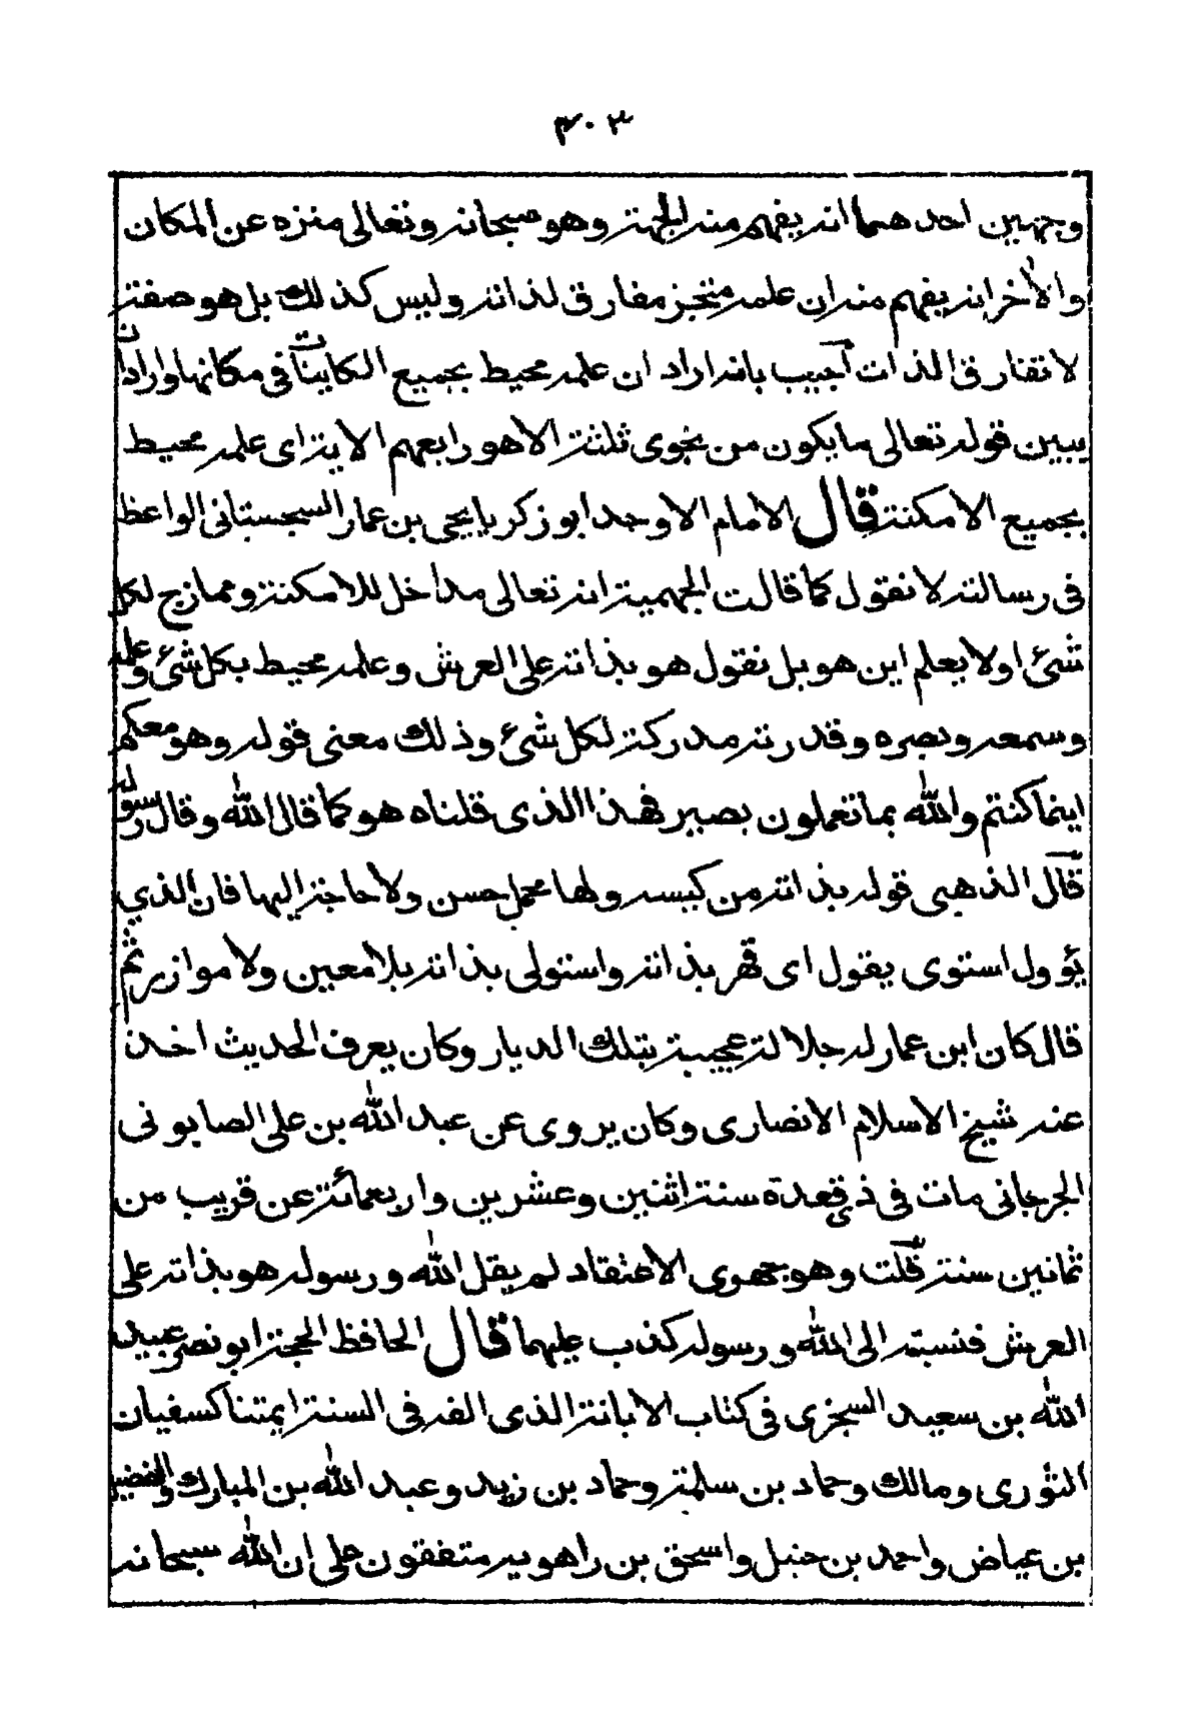 ٣٠٣
وجهين احدهما انه يفهم منه الجهة وهو سبحانه وتعالى منزه عن المكان
والاخر انه يفهم منه ان علمه متحيز مفارق لذاته وليس كذلك بل هو صفة
لا تفارق الذات اجيب بانه اراد ان علمه محيط بجميع الكاينات في مكانها واراد ان
يبين قوله تعالى ما يكون من نجوى ثلثة الا هو رابعهم الاية اى علمه محيط
بجميع الامكنة قال الامام الاوحد ابو زكريا يحيى بن عمار السجستانى الواعظ
فى رسالته لا نقول كما قالت الجهمية انه تعالى مداخل للامكنة وممازج لكل
شئ او لا يعلم اين هو بل نقول هو بذاته على العرش وعلمه محيط بكل شئ وعلمه
وسمعه وبصره وقدرته مدركة لكل شئ وذلك معنى قوله وهو معكم
اينما كنتم والله بما تعملون بصير فهذا الذى قلناه هو كما قال الله وقال رسوله
قال الذهبى قوله بذاته من كيسه ولها محمل حسن ولا حاجة اليها فان الذي
يؤول استوى يقول اى قهر بذاته واستولى بذاته بلا معين ولا موازر ثم
قال كان ابن عمار له جلالة عجيبة بتلك الديار وكان يعرف الحديث اخذ
عنه شيخ الاسلام الانصارى وكان يروى عن عبد الله بن على الصابونى
الجرجانى مات فى ذي قعدة سنة اثنين وعشرين واربعمائة عن قريب من
ثمانين سنة قلت وهو جهوى الاعتقاد لم يقل الله ورسوله هو بذاته على
العرش فنسبته الى الله ورسوله كذب عليهما قال الحافظ الحجة ابو نصر عبيد
الله بن سعيد السجزى فى كتاب الابانة الذى الفه فى السنة ايمتنا كسفيان
الثورى ومالك وحماد بن سلمة وحماد بن زيد وعبد الله بن المبارك والفضيل
بن عياض واحمد بن حنبل واسحق بن راهويه متفقون على ان الله سبحانه